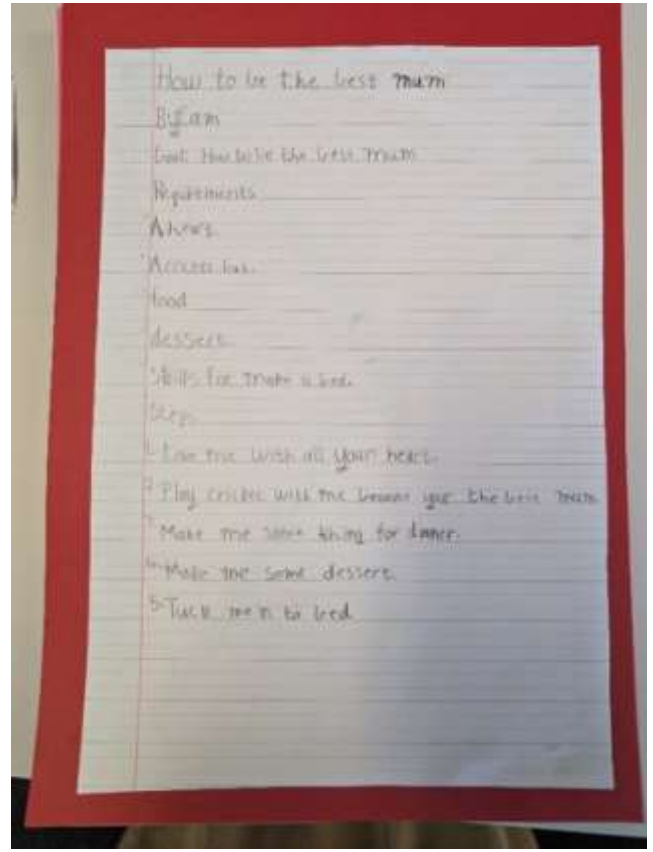 How to be the best mum
By
Goal: How to be the best mum
Requirements
A heart
food
dessert
Skills for make a bed.
Steps
1. Love me with all your heart.
2. Play cricket with me because your the best mum
3. Make me some thing for dinner.
4. Make me some dessert.
5. Tuck me in to bed